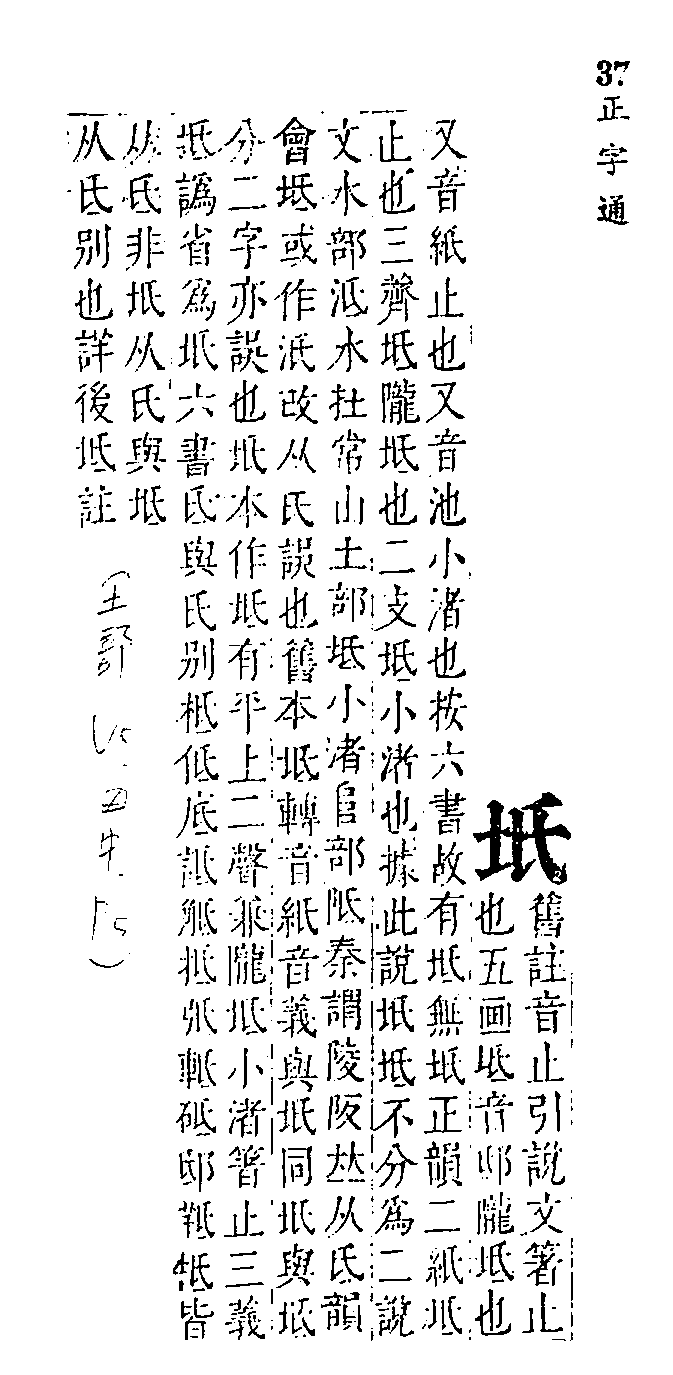 37 正字通
坁
舊註音止引說文箸止
也五画坻音邸隴坻也
又音紙止也又音池小渚也按六書故有坻無坁正韻二紙坻
止也三齊坻隴坻也二支坻小渚也據此說坁坻不分為二說
文水部泜水在常山土部坻小渚𨸏部阺秦謂陵阪𠀤从氐韻
會坻或作泜改从氏誤也舊本坻轉音紙音義與坁同坁與坻
分二字亦誤也坁本作坻有平上二聲兼隴坻小渚箸止三義
坻譌省爲坁六書氐與氏别柢低底詆觝抵弤軧砥邸䩚牴皆
从氐非坁从氏與坻
从氐别也詳後坻註